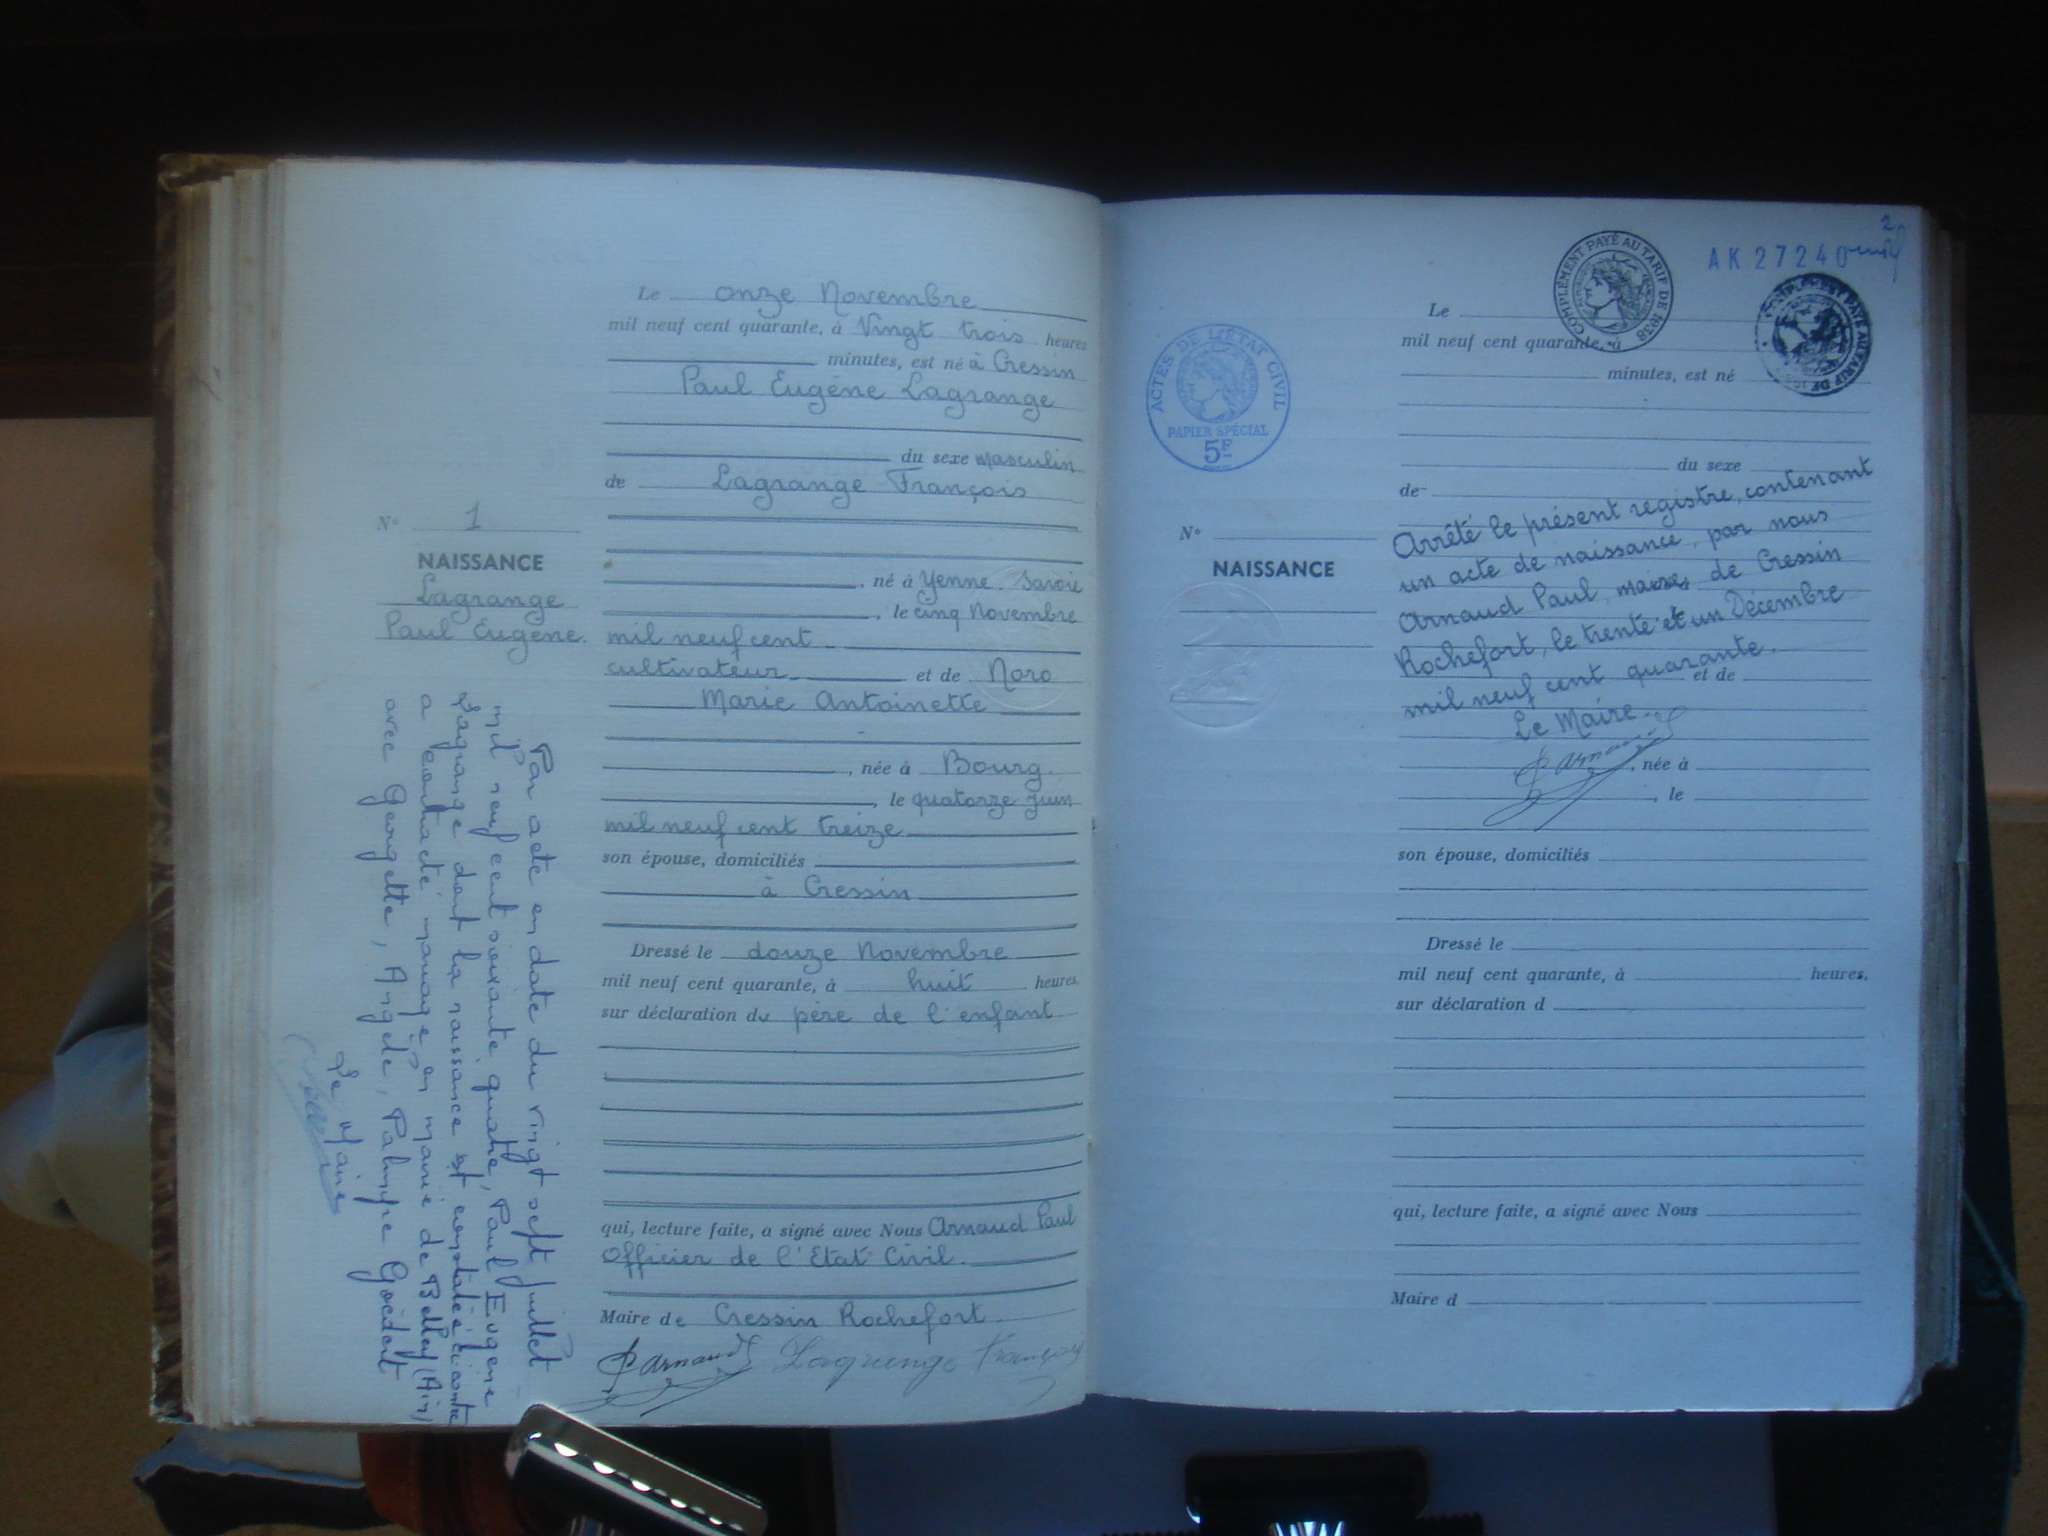 Le onze Novembre
mil neuf cent quarante, à Vingt trois heures
minutes, est né à Cressin
Paul Eugène Lagrange
du sexe masculin
de Lagrange François
né à Yenne. Savoie
, le cinq Novembre
mil neuf cent
cultivateur et de Noro
Marie Antoinette
, née à Bourg.
, le quatorze juin
mil neuf cent treize
son épouse, domiciliés
à Cressin
Dressé le douze Novembre
mil neuf cent quarante, à huit heures
sur déclaration du père de l'enfant
qui, lecture faite, a signé avec Nous Arnaud Paul
Officier de l'Etat Civil.
Maire de Cressin Rochefort
P Arnaud Lagrange François
N° 1
NAISSANCE
Lagrange
Paul Eugène.
Par acte en date du vingt sept juillet
mil neuf cent soixante quatre, Paul Eugene
Lagrange dont la naissance est constatée ci contre
a contracté mariage en mairie de Belley (Ain)
avec Georgette, Angèle, Palmyre Goédert
Le Maire
2
AK 27240
COMPLÉMENT PAYÉ AU TARIF DE 1938
COMPLÉMENT PAYÉ AU TARIF DE
ACTES DE L'ÉTAT CIVIL
PAPIER SPÉCIAL
5F
Le
mil neuf cent quarante, à
minutes, est né
du sexe
de
Arrêté le présent registre, contenant
un acte de naissance, par nous
Arnaud Paul, maire, de Cressin
Rochefort, le trente et un Décembre
mil neuf cent quarante.
et de
Le Maire.
P Arnaud
, née à
, le
son épouse, domiciliés
Dressé le
mil neuf cent quarante, à heures.
sur déclaration d
qui, lecture faite, a signé avec Nous
Maire d
N°
NAISSANCE